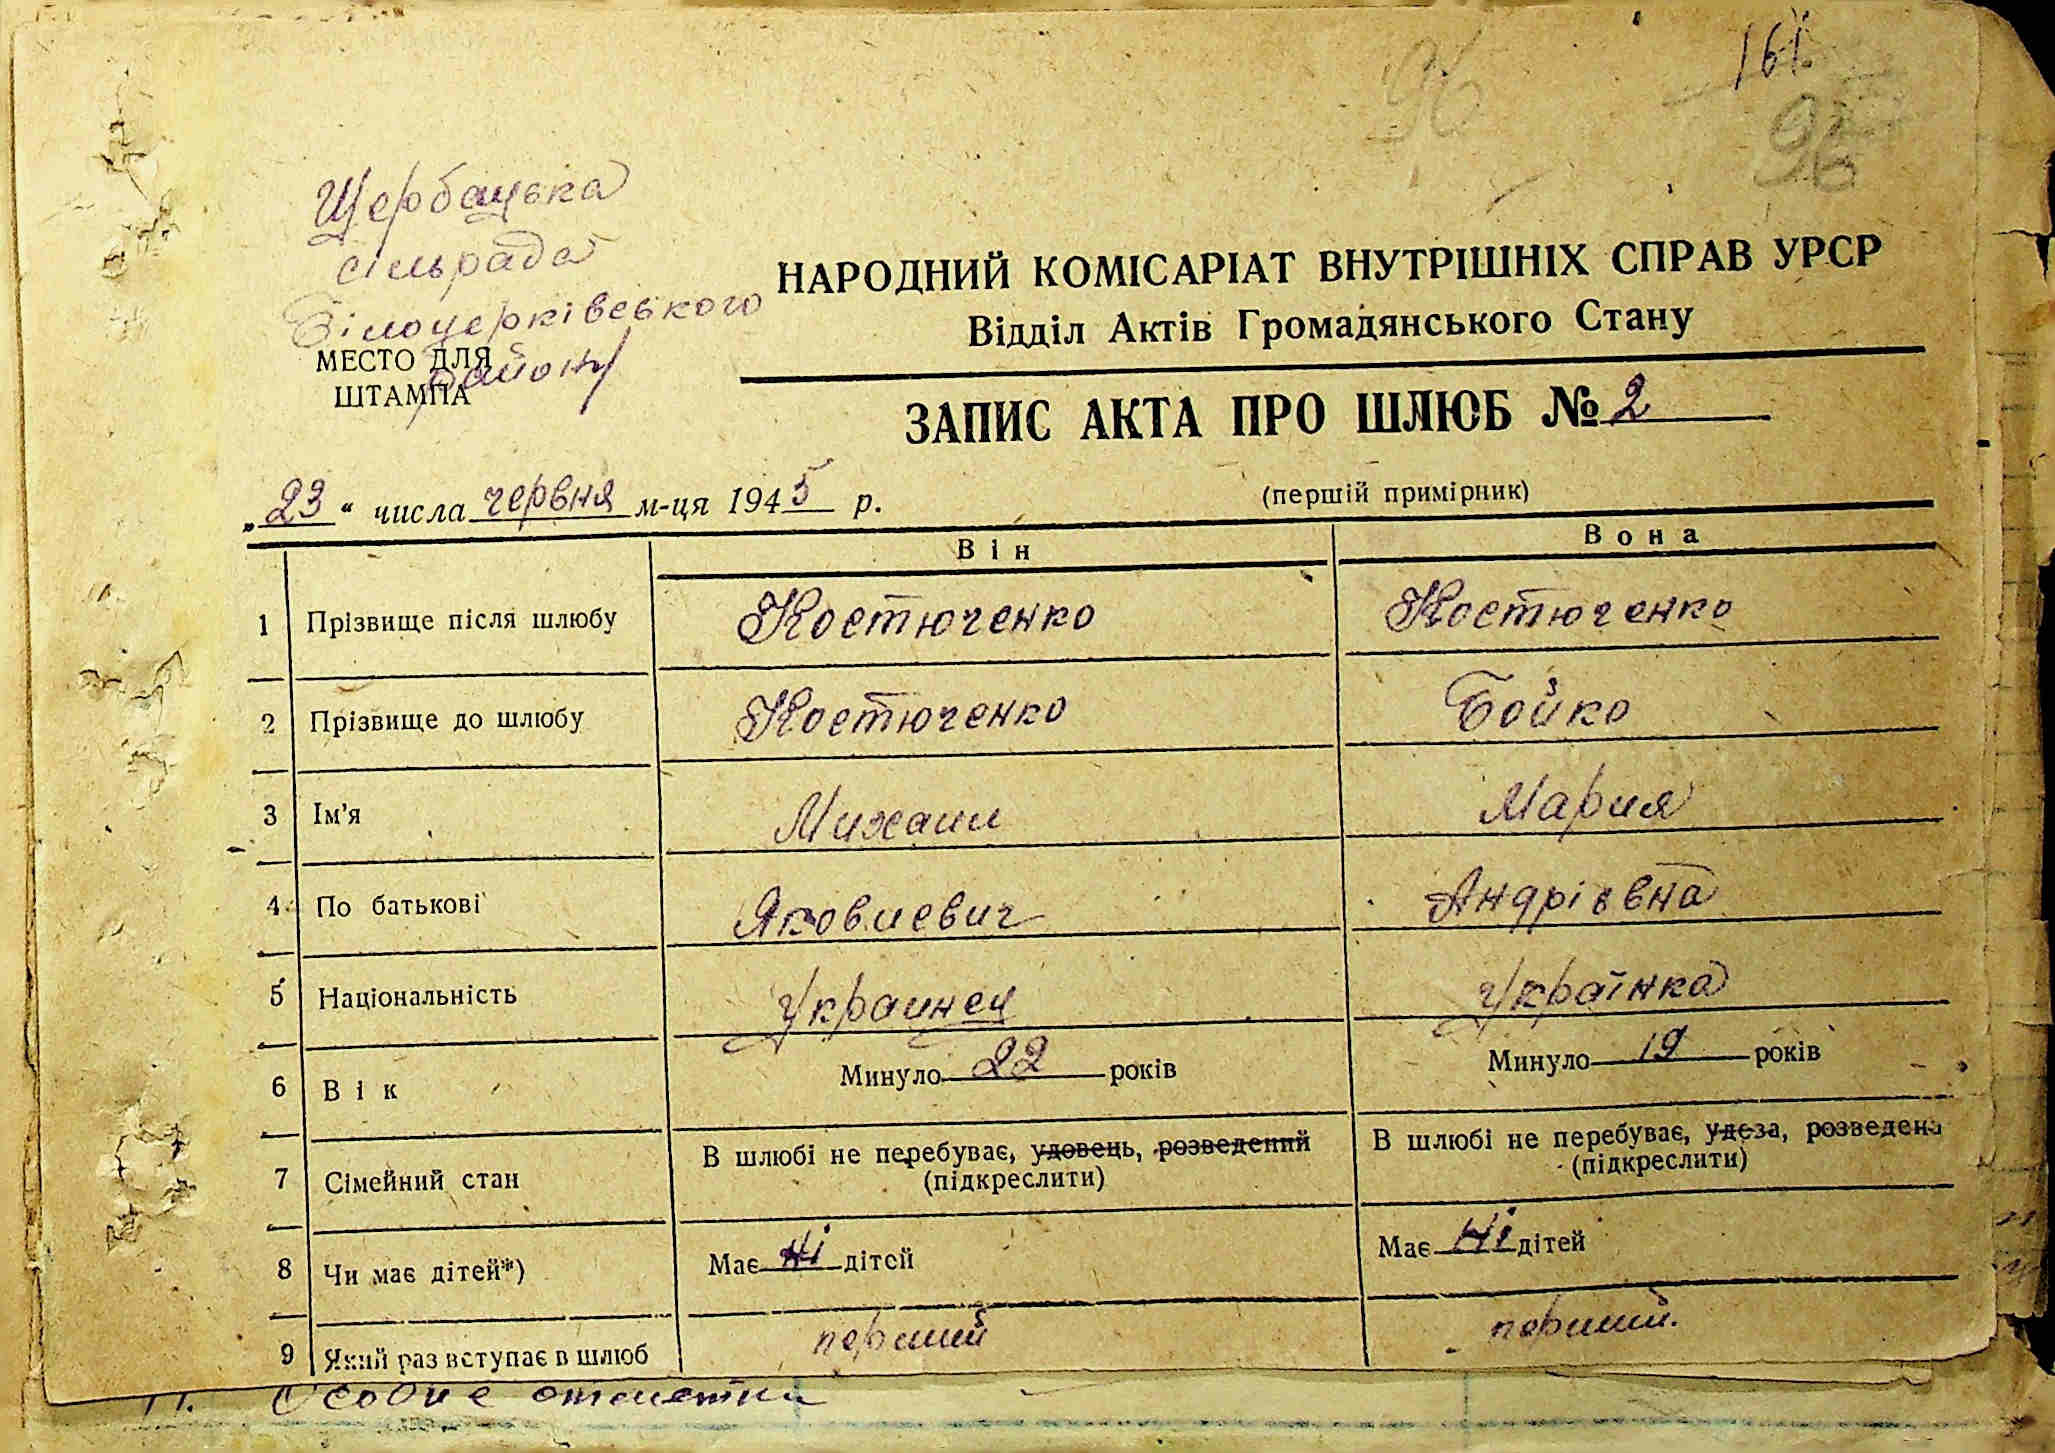 161.
96
96
Щербацька
сільрада
Білоцерківського
району
МЕСТО ДЛЯ
ШТАМПА
НАРОДНИЙ КОМІСАРІАТ ВНУТРІШНІХ СПРАВ УРСР
Відділ Актів Громадянського Стану
ЗАПИС АКТА ПРО ШЛЮБ № 2
„23“ числа червня м-ця 1945 р.
(першій примірник)
Він Вона
1 Прізвище після шлюбу Костюченко Костюченко
2 Прізвище до шлюбу Костюченко Бойко
3 Ім'я Михаил Мария
4 По батькові Яковлевич Андріївна
5 Національність Украинец Українка
6 Вік Минуло 22 років Минуло 19 років
7 Сімейний стан В шлюбі не перебуває, удовець, розведений (підкреслити) В шлюбі не перебуває, удова, розведена (підкреслити)
8 Чи має дітей*) Має ні дітей Має ні дітей
9 Який раз вступає в шлюб перший перший.
11. Особые отметки